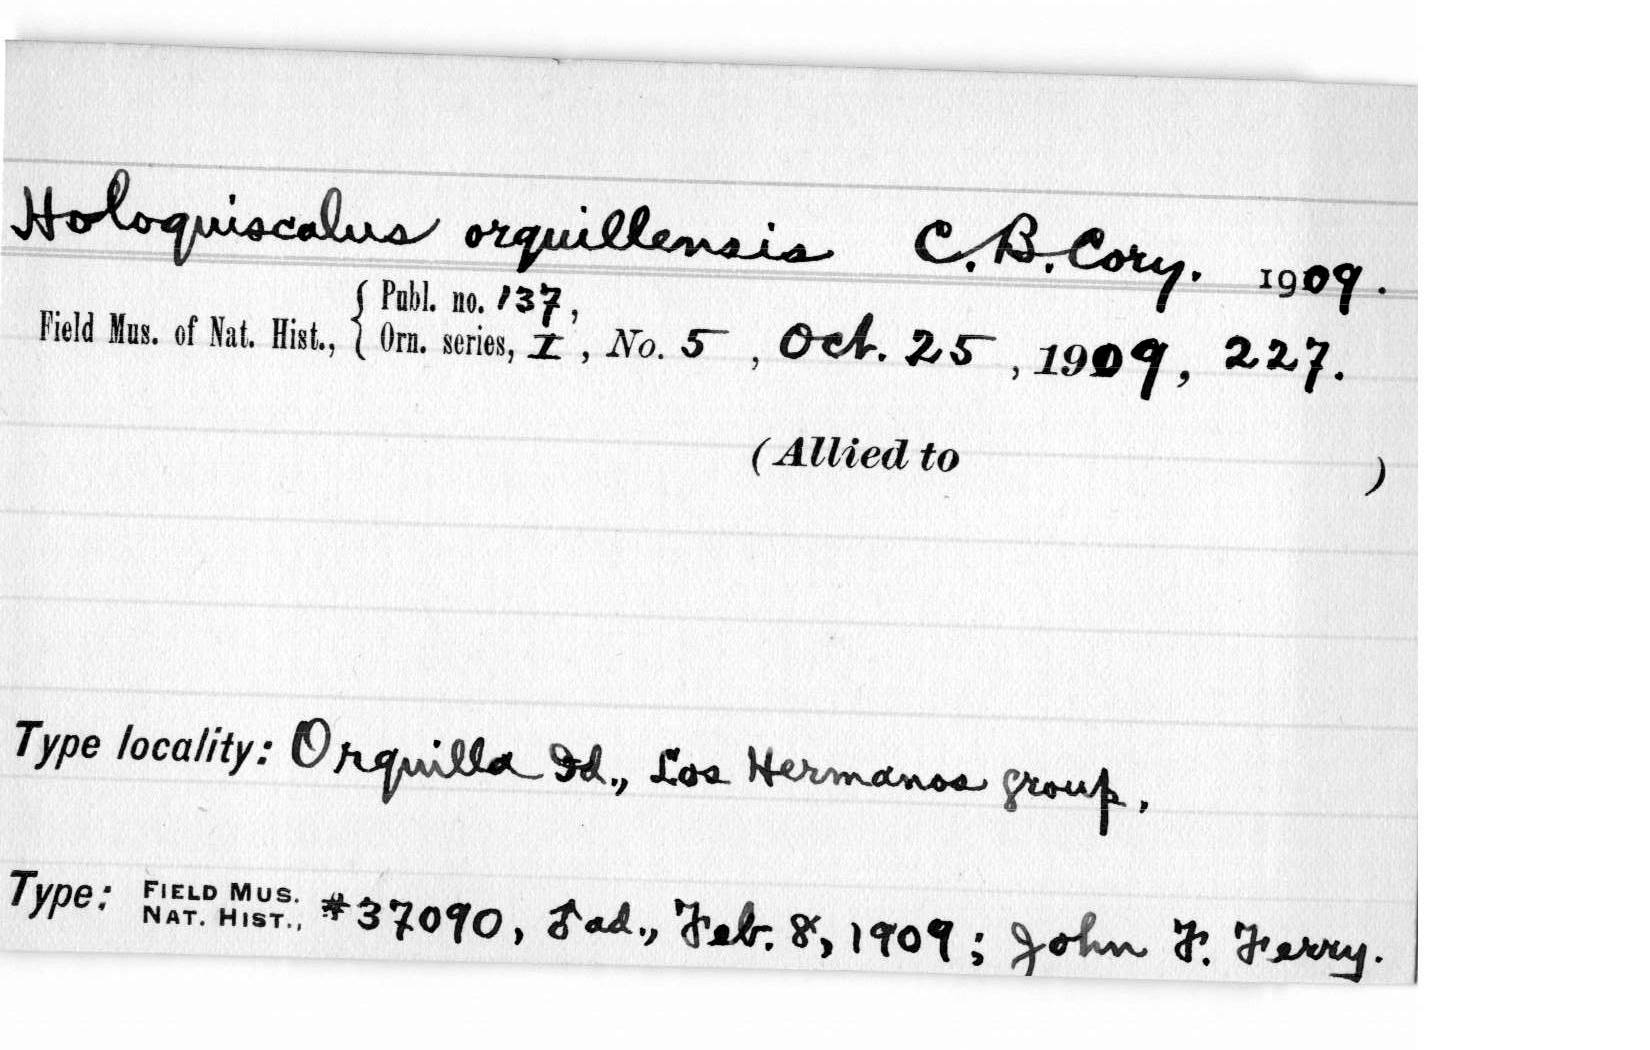 Holoquiscalus orquillensis C. B. Cory. 1909.
Field Mus. of Nat. Hist., { Publ. no. 137,
Orn. series, I, No. 5, Oct. 25, 1909, 227.
(Allied to )
Type locality: Orquilla Id., Los Hermanos group.
Type: FIELD MUS. NAT. HIST., #37090, ♂ ad., Feb. 8, 1909; John F. Ferry.